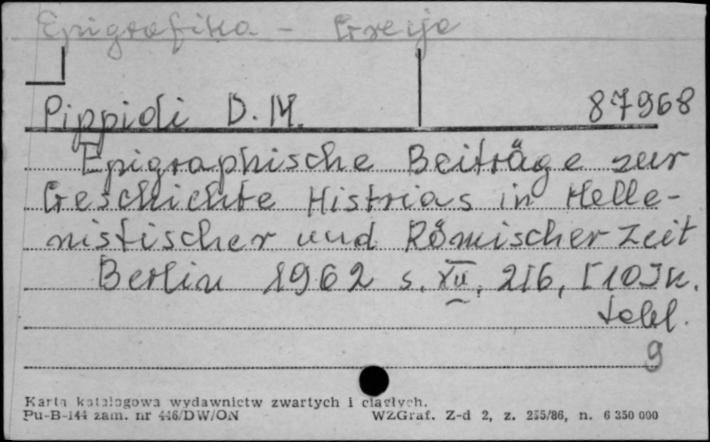 Epigrafika - Grecja
Pippidi D.M. 87968
Epigraphische Beiträge zur
Geschichte Histrias in Helle-
nistischer und Römischer Zeit
Berlin 1962 s. XII, 216, [10] k.
tabl.
9
Karta katalogowa wydawnictw zwartych i ciągłych.
Pu-B-144 zam. nr 446/DW/ON WZGraf. Z-d 2, z. 255/86, n. 6 350 000